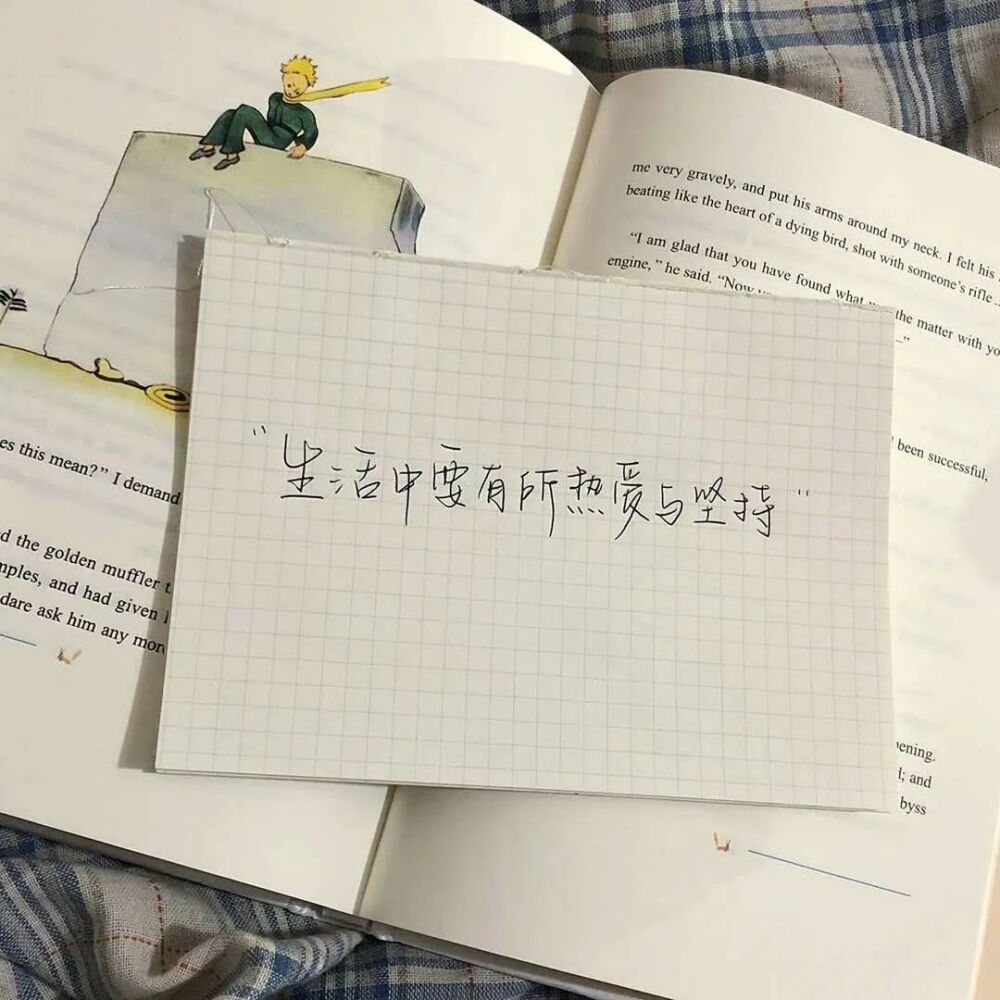 me very gravely, and put his arms around my neck. I felt his
beating like the heart of a dying bird, shot with someone's rifle...
"I am glad that you have found what the matter with
engine," he said. "Now
"
been successful,
es this mean?" I demand
d the golden muffler
mples, and had given
dare ask him any more
"生活中要有所热爱与坚持"
pening.
; and
byss